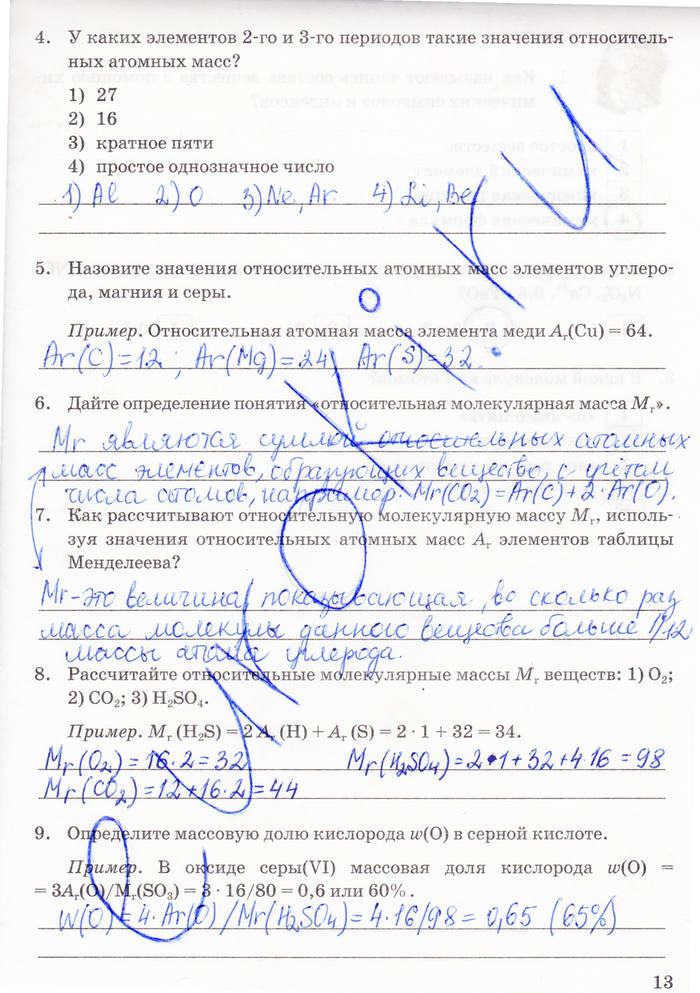 4. У каких элементов 2-го и 3-го периодов такие значения относитель-
ных атомных масс?
1) 27
2) 16
3) кратное пяти
4) простое однозначное число
1) Al 2) O 3) Ne, Ar 4) Li, Be
5. Назовите значения относительных атомных масс элементов углеро-
да, магния и серы.
Пример. Относительная атомная масса элемента меди Ar(Cu) = 64.
Ar(C)=12; Ar(Mg)=24; Ar(S)=32.
6. Дайте определение понятия «относительная молекулярная масса Mr».
Mr являются суммой относительных атомных
масс элементов, образующих вещество, с учётом
числа атомов, например: Mr(CO2)=Ar(C)+2·Ar(O).
7. Как рассчитывают относительную молекулярную массу Mr, исполь-
зуя значения относительных атомных масс Ar элементов таблицы
Менделеева?
Mr-это величина, показывающая, во сколько раз
масса молекулы данного вещества больше 1/12
массы атома углерода.
8. Рассчитайте относительные молекулярные массы Mr веществ: 1) O₂;
2) CO₂; 3) H₂SO₄.
Пример. Mr (H₂S) = 2 Ar (H) + Ar (S) = 2 · 1 + 32 = 34.
Mr(O2)=16·2=32 Mr(H2SO4)=2·1+32+4·16=98
Mr(CO2)=12+16·2=44
9. Определите массовую долю кислорода w(O) в серной кислоте.
Пример. В оксиде серы(VI) массовая доля кислорода w(O) =
= 3Ar(O)/Mr(SO₃) = 3 · 16/80 = 0,6 или 60%.
W(O)=4·Ar(O)/Mr(H2SO4)=4·16/98=0,65 (65%)
13